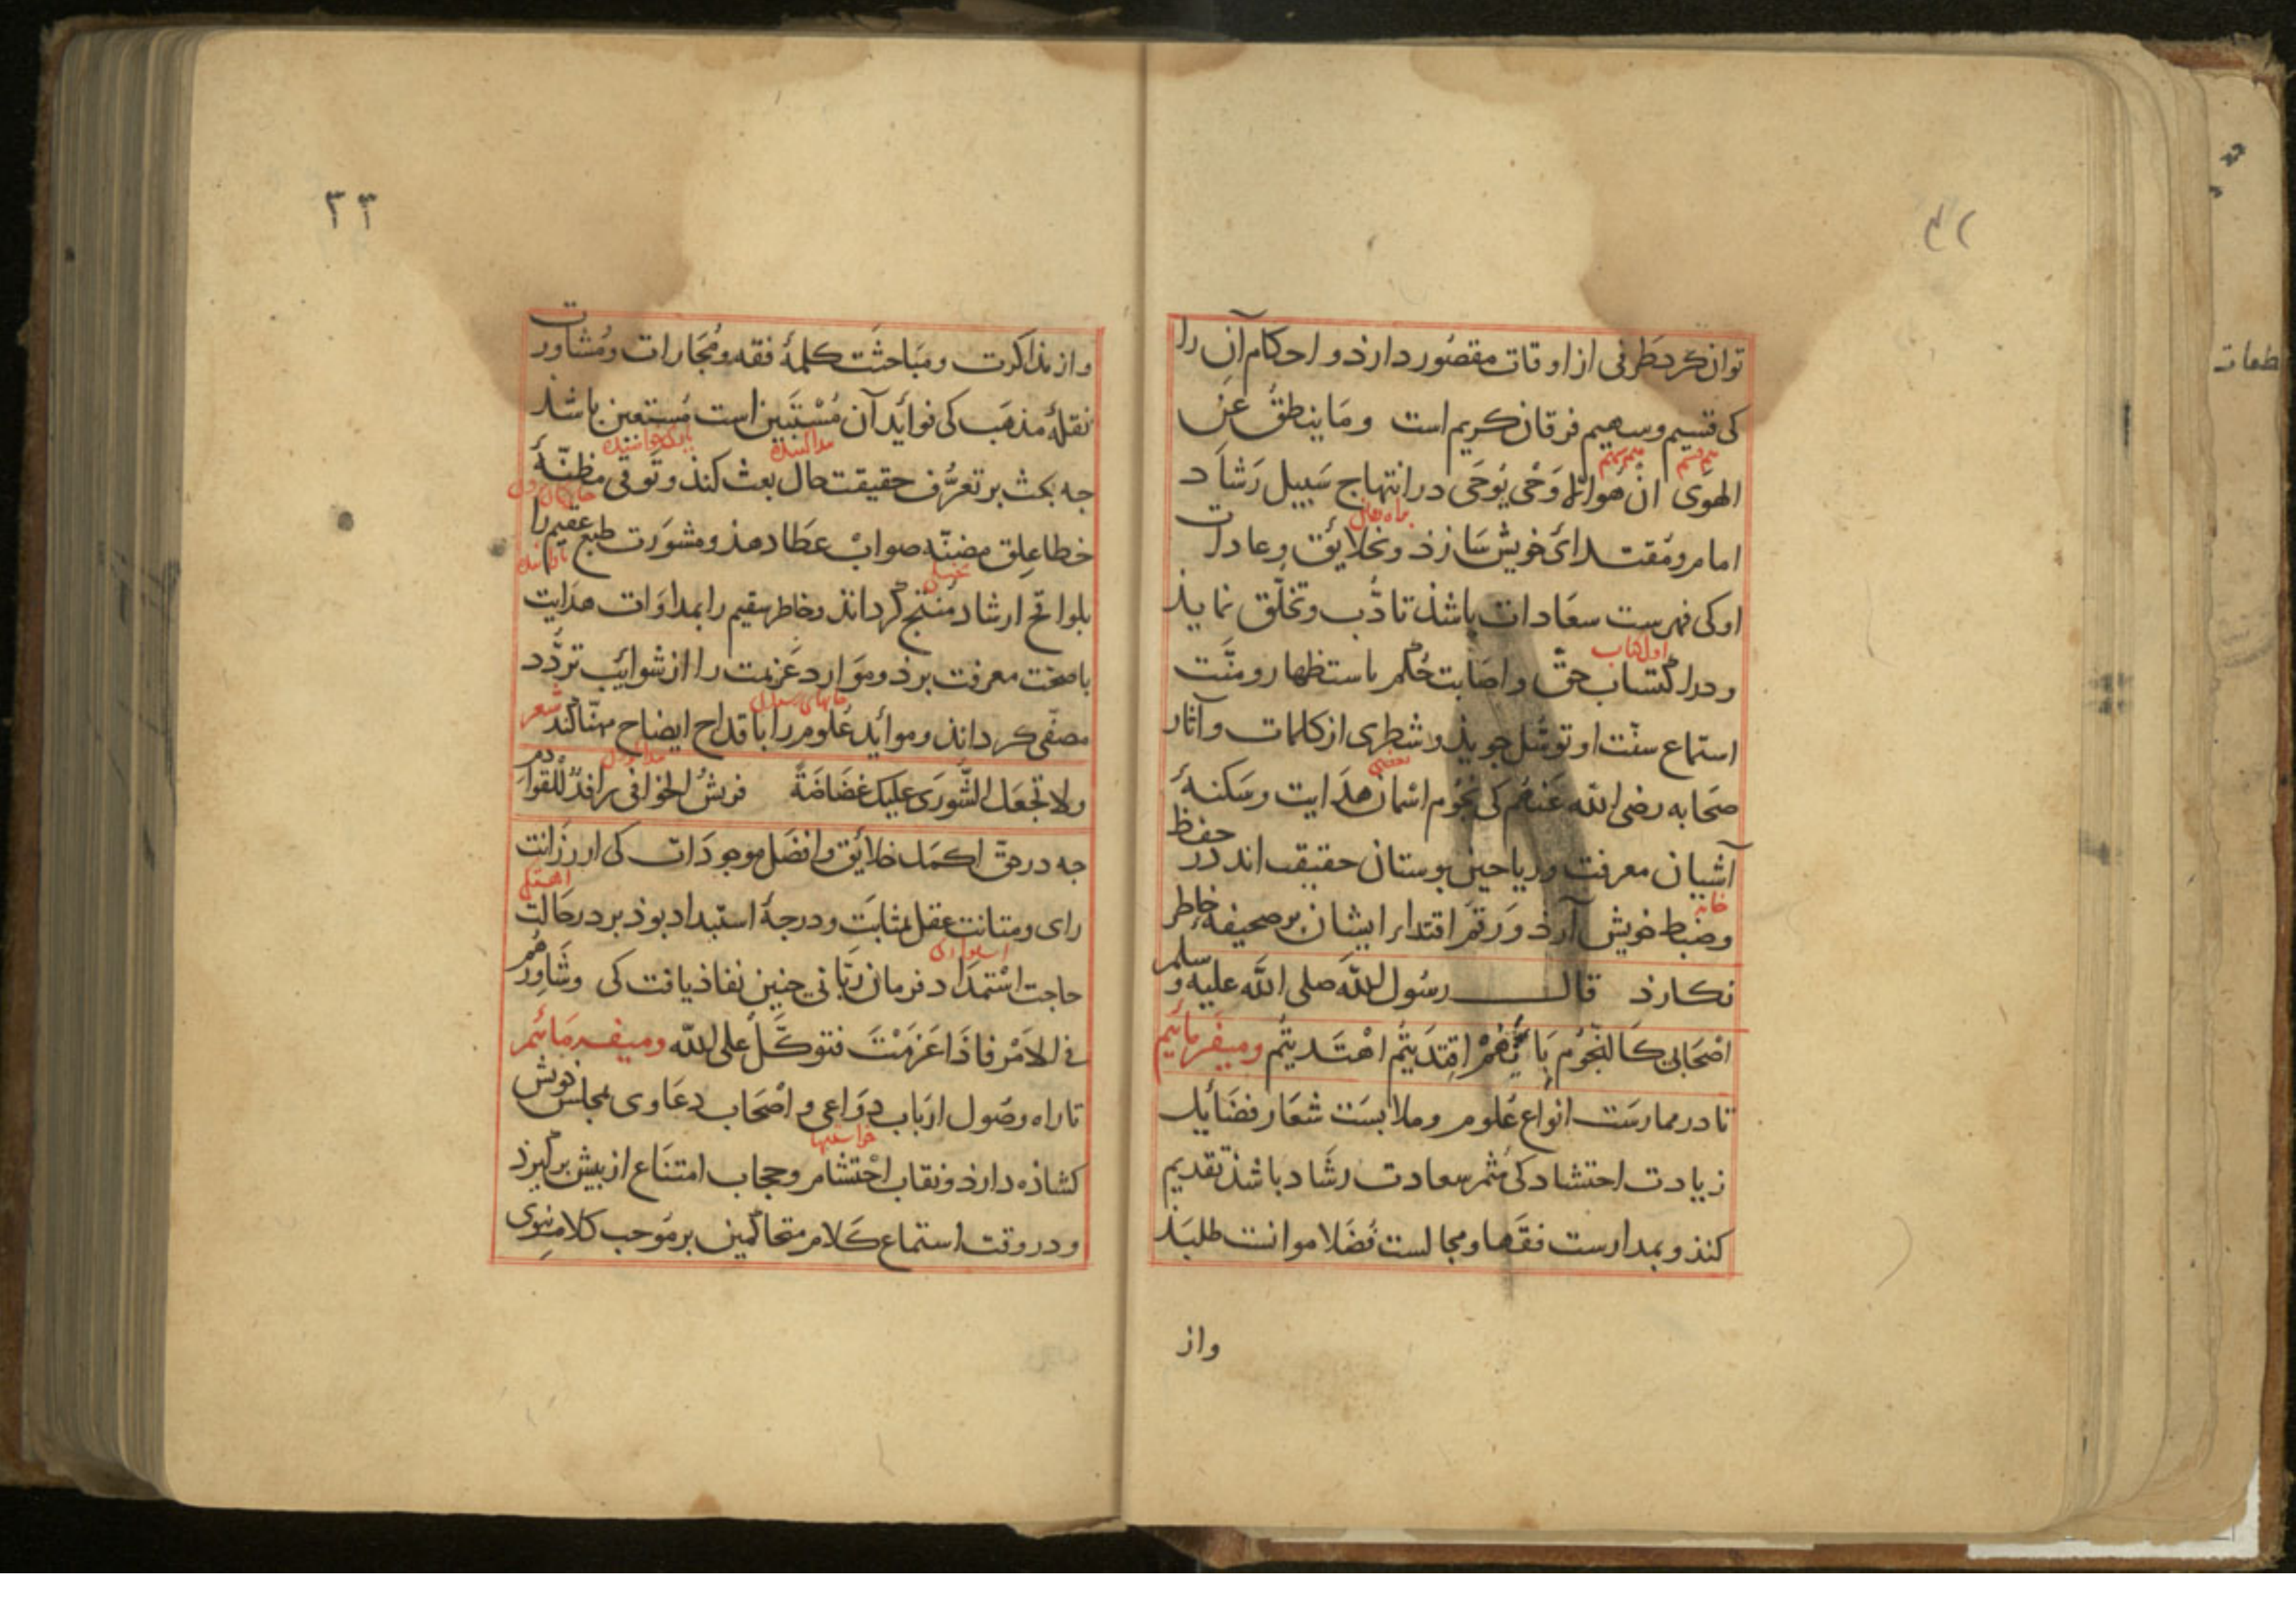 توان کرد طرفی از اوقات مقصور دارذ و احکام آن را
کی قسیم و سهیم فرقان کریم است وما ینطق عن
الهوی ان هو الا وحی یوحی در انتهاج سبیل رشاد
امام و مقتدای خویش سازذ و بخلایق و عادات
او کی فهرست سعادات باشذ تادب و تخلق نمایذ
اول کتاب
و در اکتساب حق و اصابت حکم باستظهار و منت
استماع سنت او توسل جویذ و شطری از کلمات و آثار
صحابه رضی الله عنهم کی نجوم اسمان هدایت و سکنهٔ
آشیان معرفت و ریاحین بوستان حقیقت اند در حفظ
خانه
و ضبط خویش آرذ و رقم اقتدا بر ایشان بر صحیفه خاطر
نکارذ قال رسول الله صلی الله علیه و سلم
اصحابی کالنجوم بایهم اقتدیتم اهتدیتم ومیفرماییم
تا در ممارست انواع علوم و ملابست شعار فضایل
زیادت احتشاد کی مثمر سعادت رشاد باشذ تقدیم
کنذ و بمدارست فقها و مجالست فضلا موانست طلبذ
واز
۳۳
واز مذاکرت و مباحثت کلمهٔ فقه و مجارات و مشاورت
نقلهٔ مذهب کی فوائد آن مستبین است مستعین باشذ
جه بحث بر تعرف حقیقت حال بعث کنذ و توقی مظنهٔ
خطا علق مضنه صواب عطا دهذ و مشورت طبع عقیم را
بلواقح ارشاد منتج کرداند و خاطر سقیم را بمداوات هدایت
با صحت معرفت برذ و موارد عزیمت را از شوایب تردد
مصفی کرداند و موائد علوم را با قداح ایضاح مهنا کند شعر
ولا تجعل الشوری علیک غضاضة فریش الخوافی رافد للقوادم
جه در حق اکمل خلائق و افضل موجودات کی از رزانت
رای و متانت عقل بمثابت و درجهٔ استبداد بوذ بر در حالت
حاجت استمداد فرمان ربانی جنین نفاذ یافت کی وشاورهم
فی الامر فاذا عزمت فتوکل علی الله ومیفرمائیم
تا راه وصول ارباب دواعی و اصحاب دعاوی بمجلس خویش
کشاذه دارذ و نقاب احتشام و حجاب امتناع از بیش برکیرذ
و در وقت استماع کلام متحاکمین بر موجب کلام نبوی